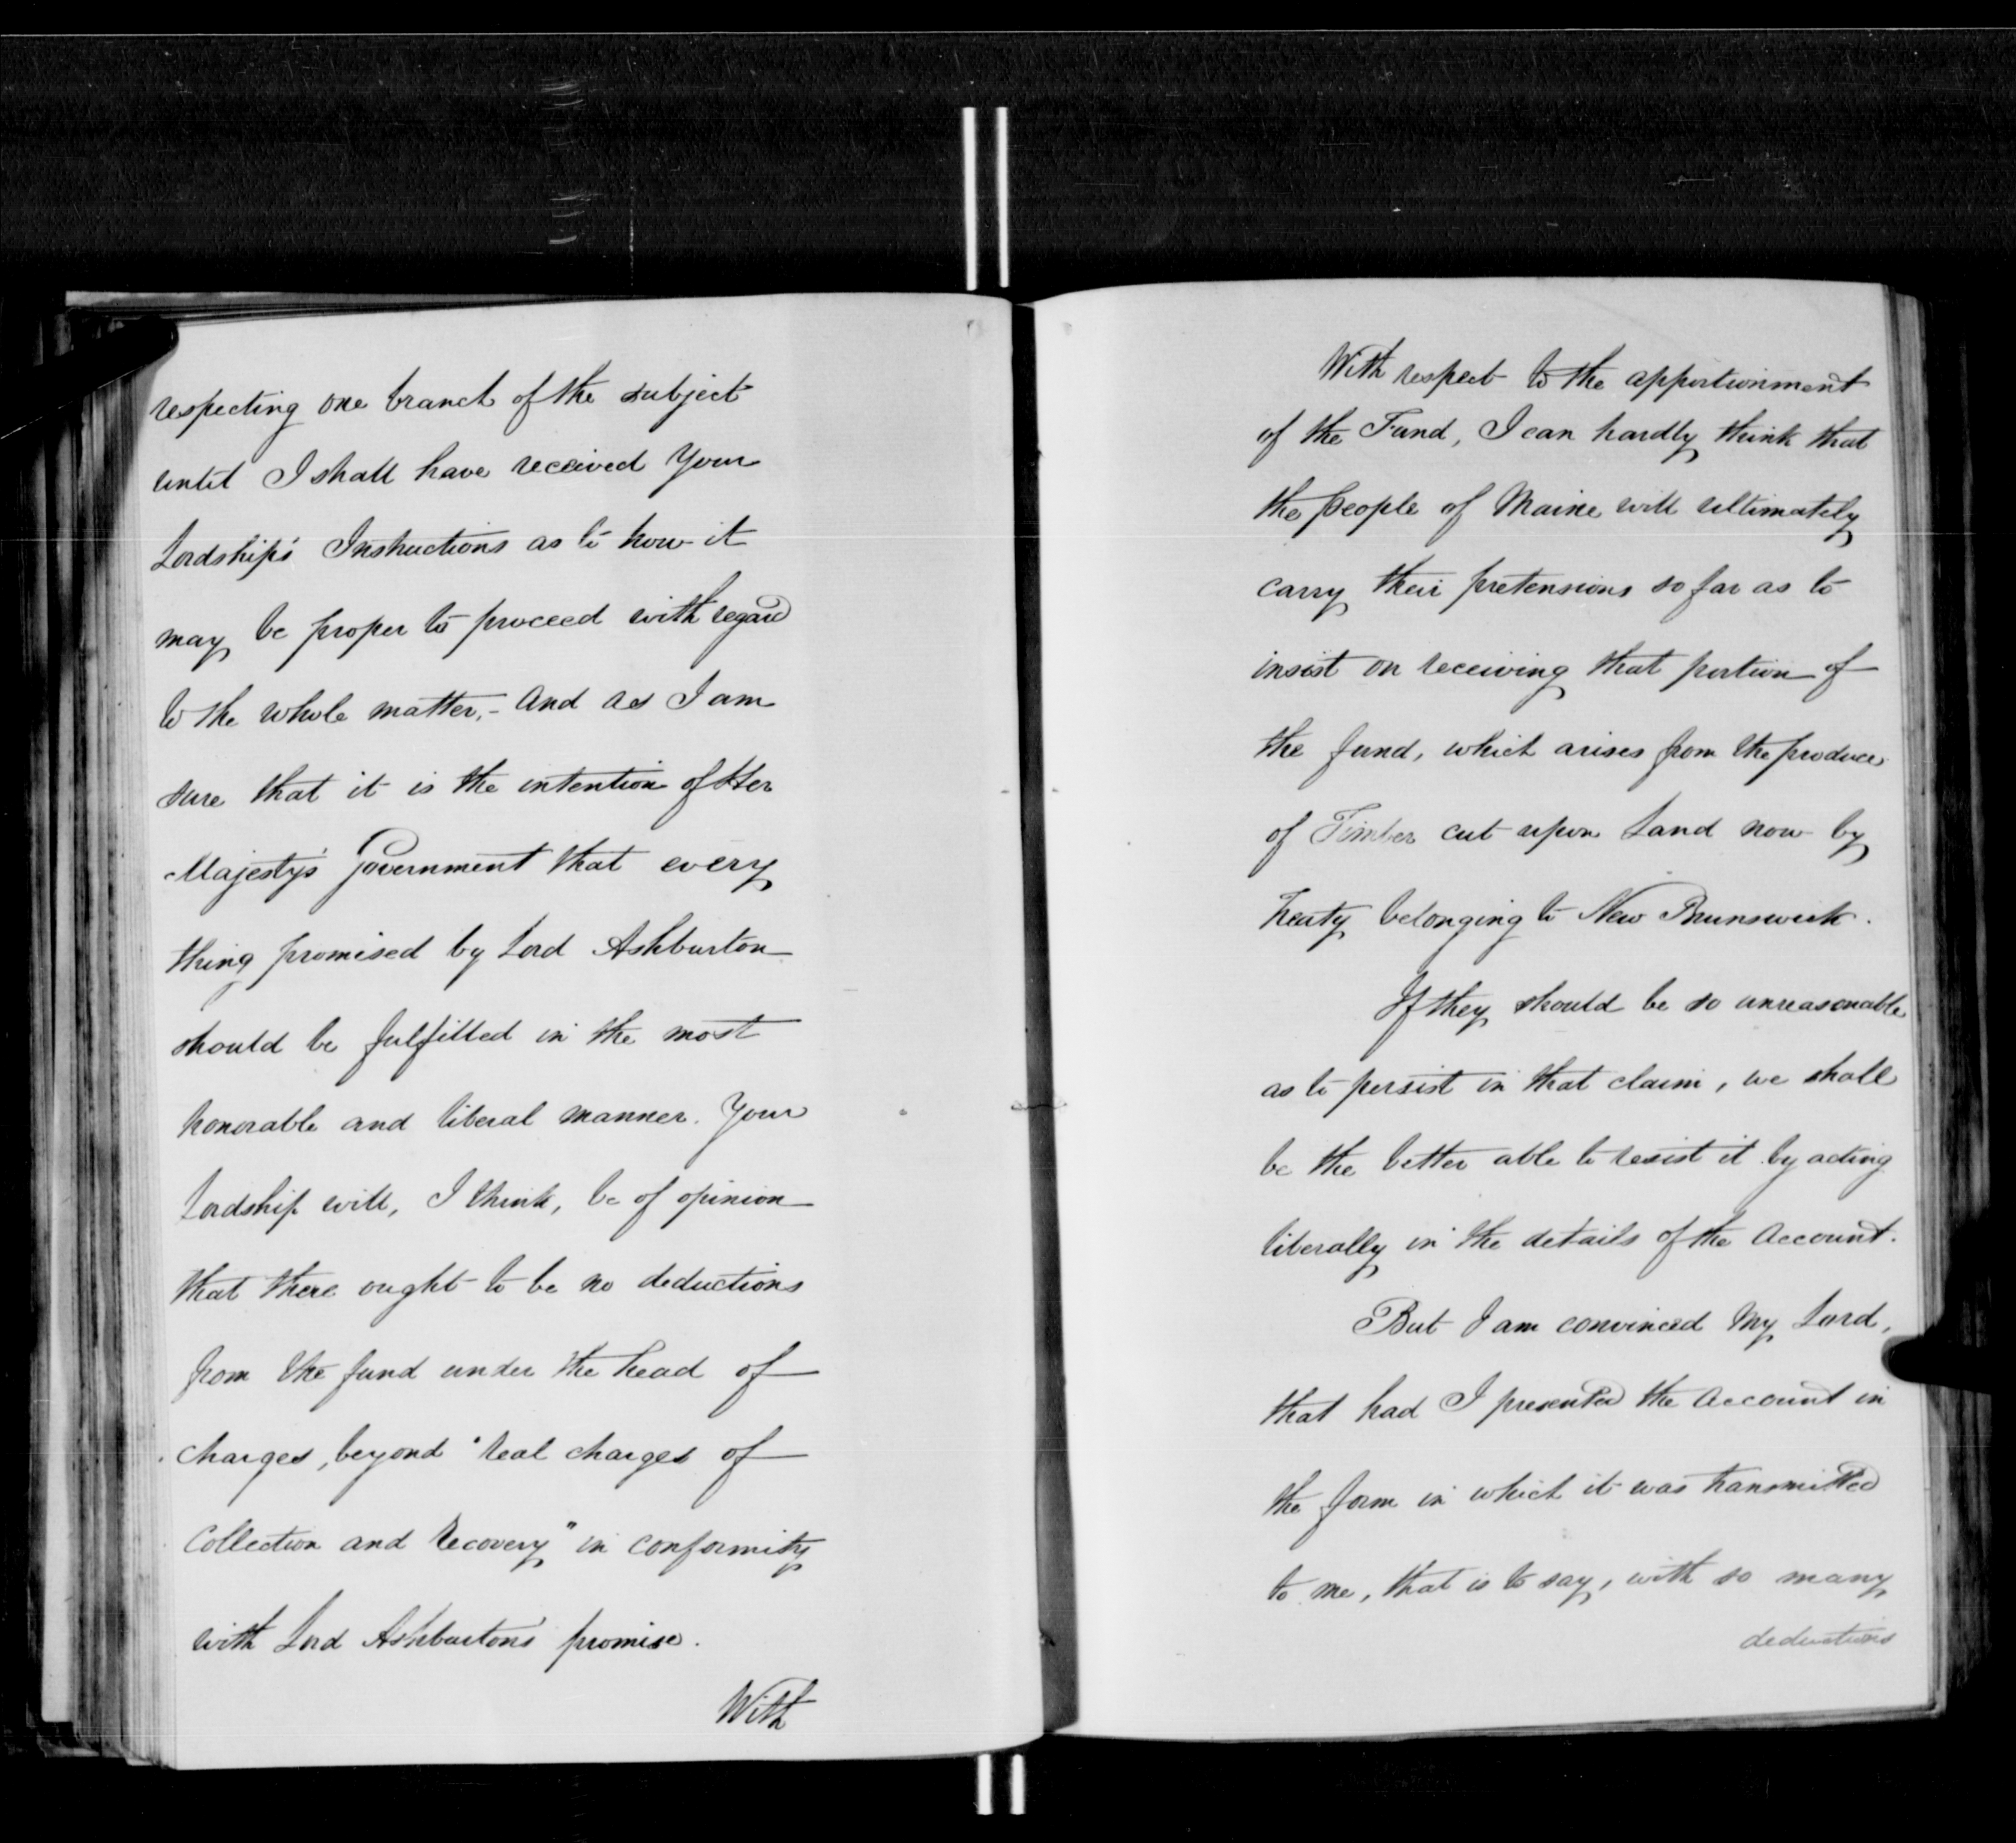 respecting one branch of the subject
until I shall have received Your
Lordship's Instructions as to how it
may be proper to proceed with regard
to the whole matter, - and as I am
sure that it is the intention of Her
Majesty's Government that every
thing promised by Lord Ashburton
should be fulfilled in the most
honorable and liberal manner. Your
Lordship will, I think, be of opinion
that there ought to be no deductions
from the fund under the head of
Charges, beyond "real charges of
Collection and Recovery" in conformity
with Lord Ashburton's promise.
With
With respect to the apportionment
of the Fund, I can hardly think that
the people of Maine will ultimately
carry their pretensions so far as to
insist on receiving that portion of
the fund, which arises from the produce
of Timber cut upon Land now by
Treaty belonging to New Brunswick.
If they should be so unreasonable
as to persist in that claim, we shall
be the better able to resist it by acting
liberally in the details of the Account.
But I am convinced My Lord,
that had I presented the Account in
the form in which it was transmitted
to me, that is to say, with so many
deductions